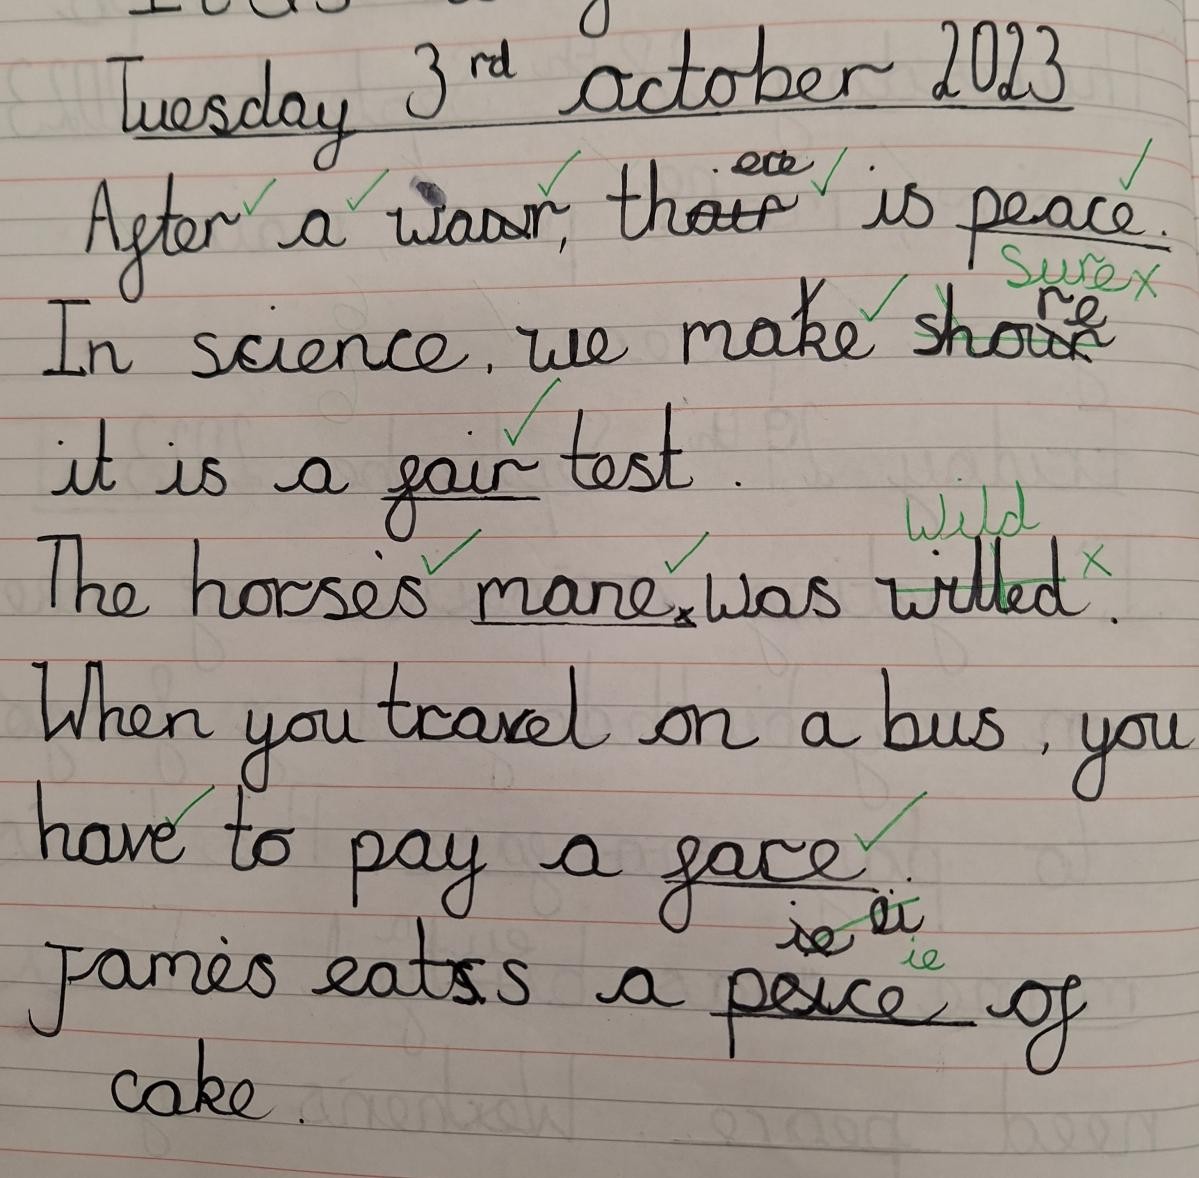 Tuesday 3rd october 2023
ere
After a waar, thair is peace.
Sure x
re
In science, we make shour
it is a fair test.
Wild
The horse's mane was willed x.
When you travel on a bus, you
have to pay a fare.
ie ei
ie
James eatss a peice of
cake.